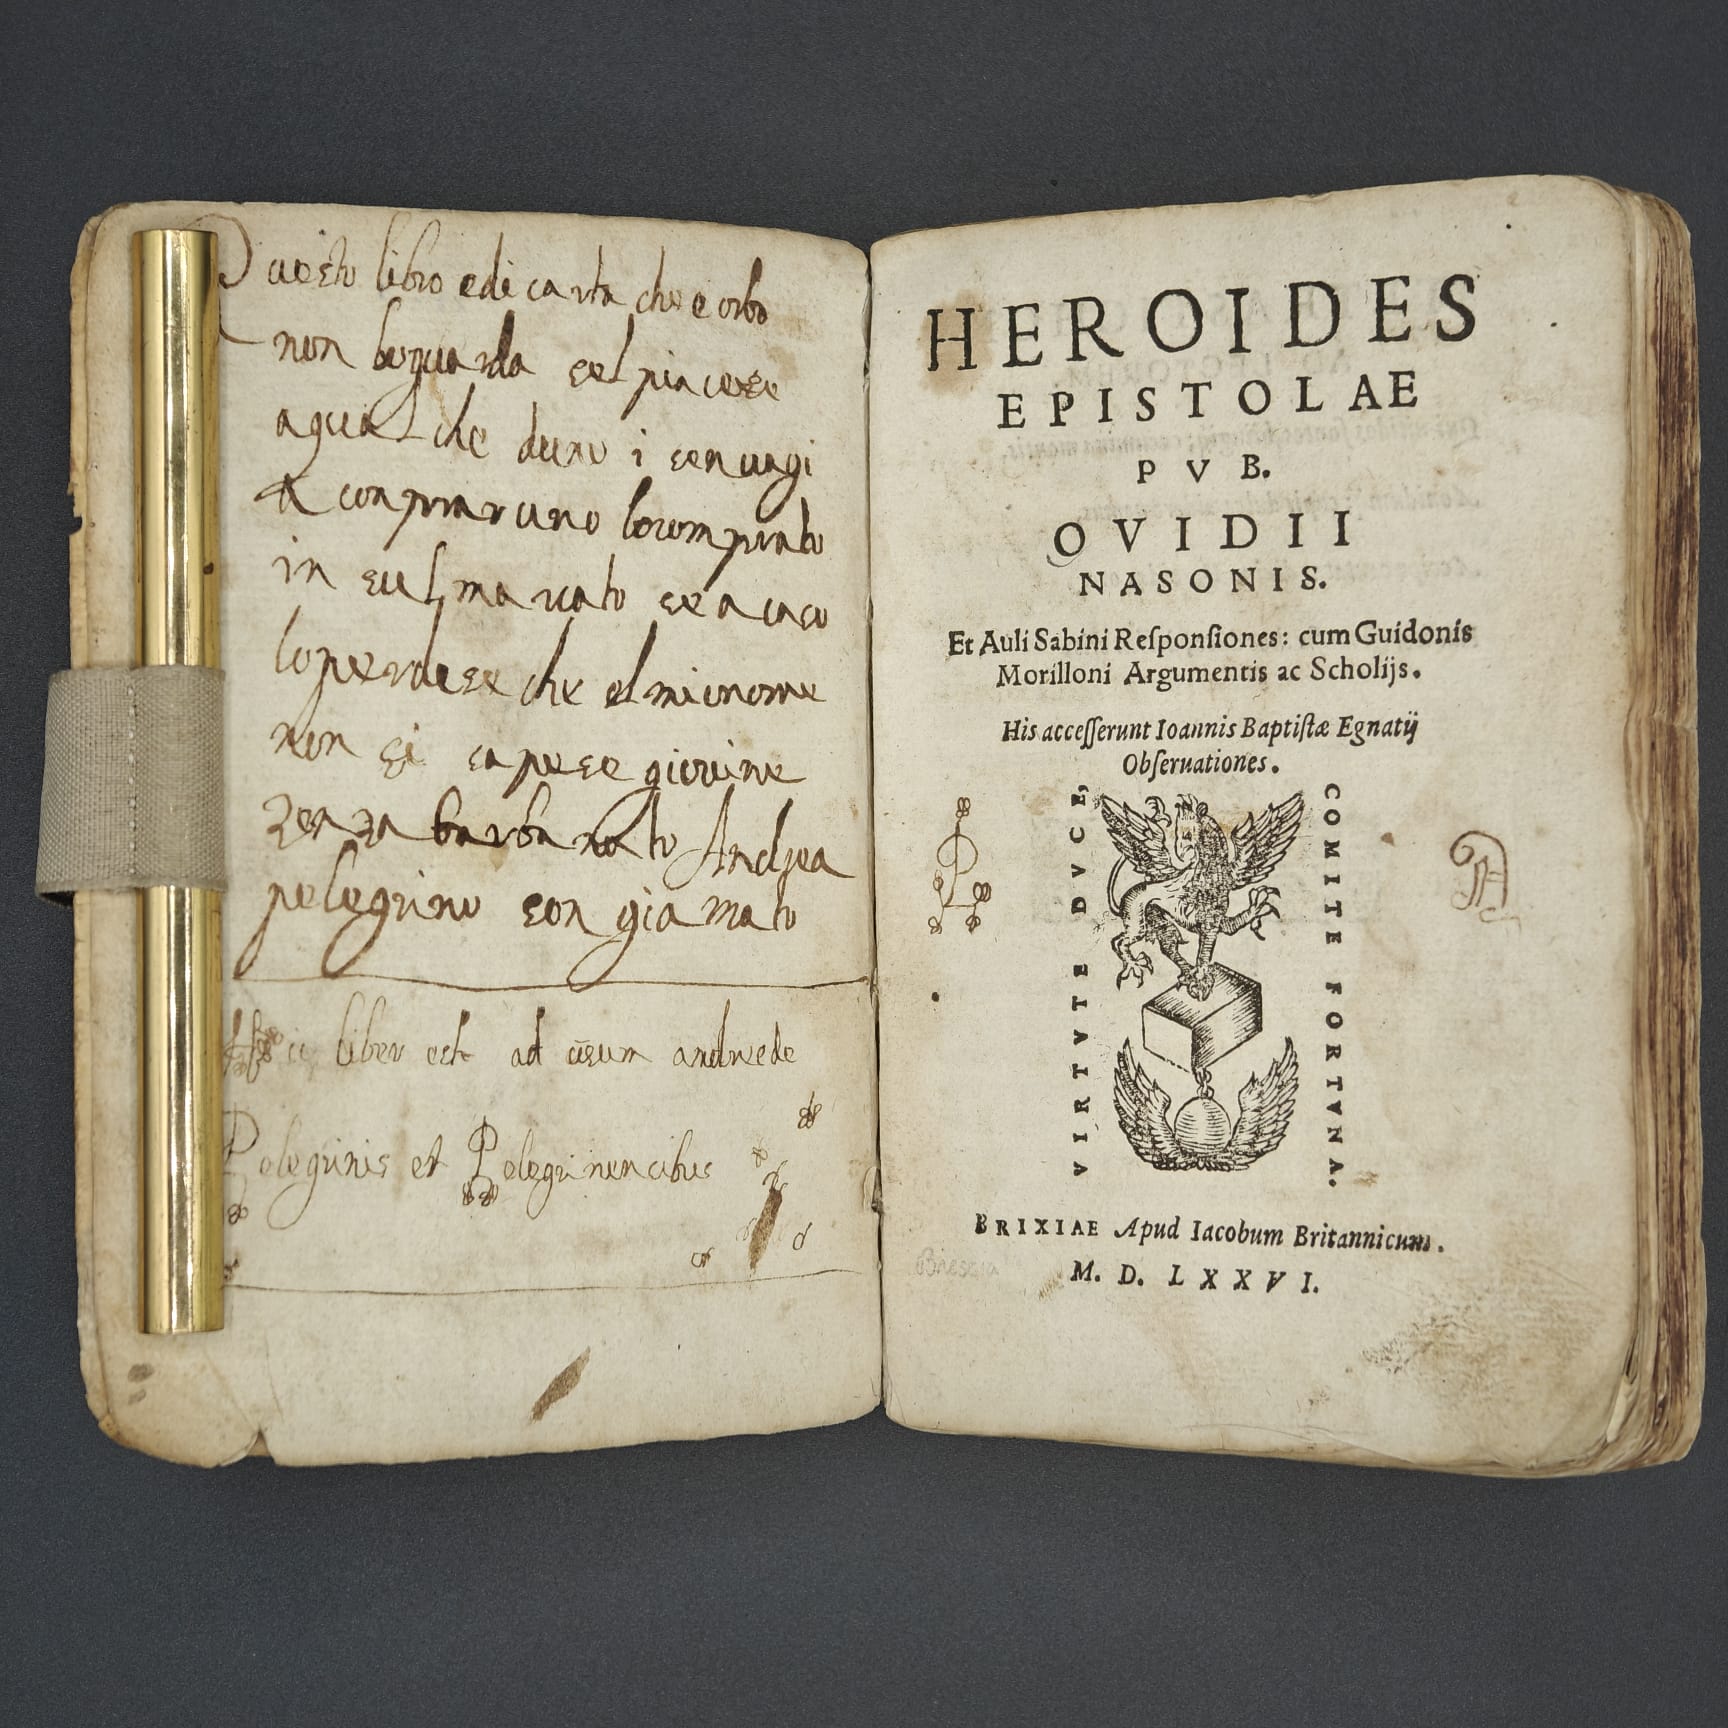 Questo libro e di carta che e orbo
non lo guarda se l piacese
a qual che duno i
A conprar uno lo comprato
in sul marcato se a caso
lo perdese che el mio nome
non si sapese giovine
zenza barba nato Andrea
pelegrino son giamato
liber est ad usum andree de
Pelegrinis et Pelegrinensibus
HEROIDES
EPISTOLAE
PVB.
OVIDII
NASONIS.
Et Auli Sabini Responsiones: cum Guidonis
Morilloni Argumentis ac Scholijs.
His accesserunt Ioannis Baptistæ Egnatij
Obseruationes.
VIRTVTE DVCE,
COMITE FORTVNA.
BRIXIAE Apud Iacobum Britannicum.
M. D. LXXVI.